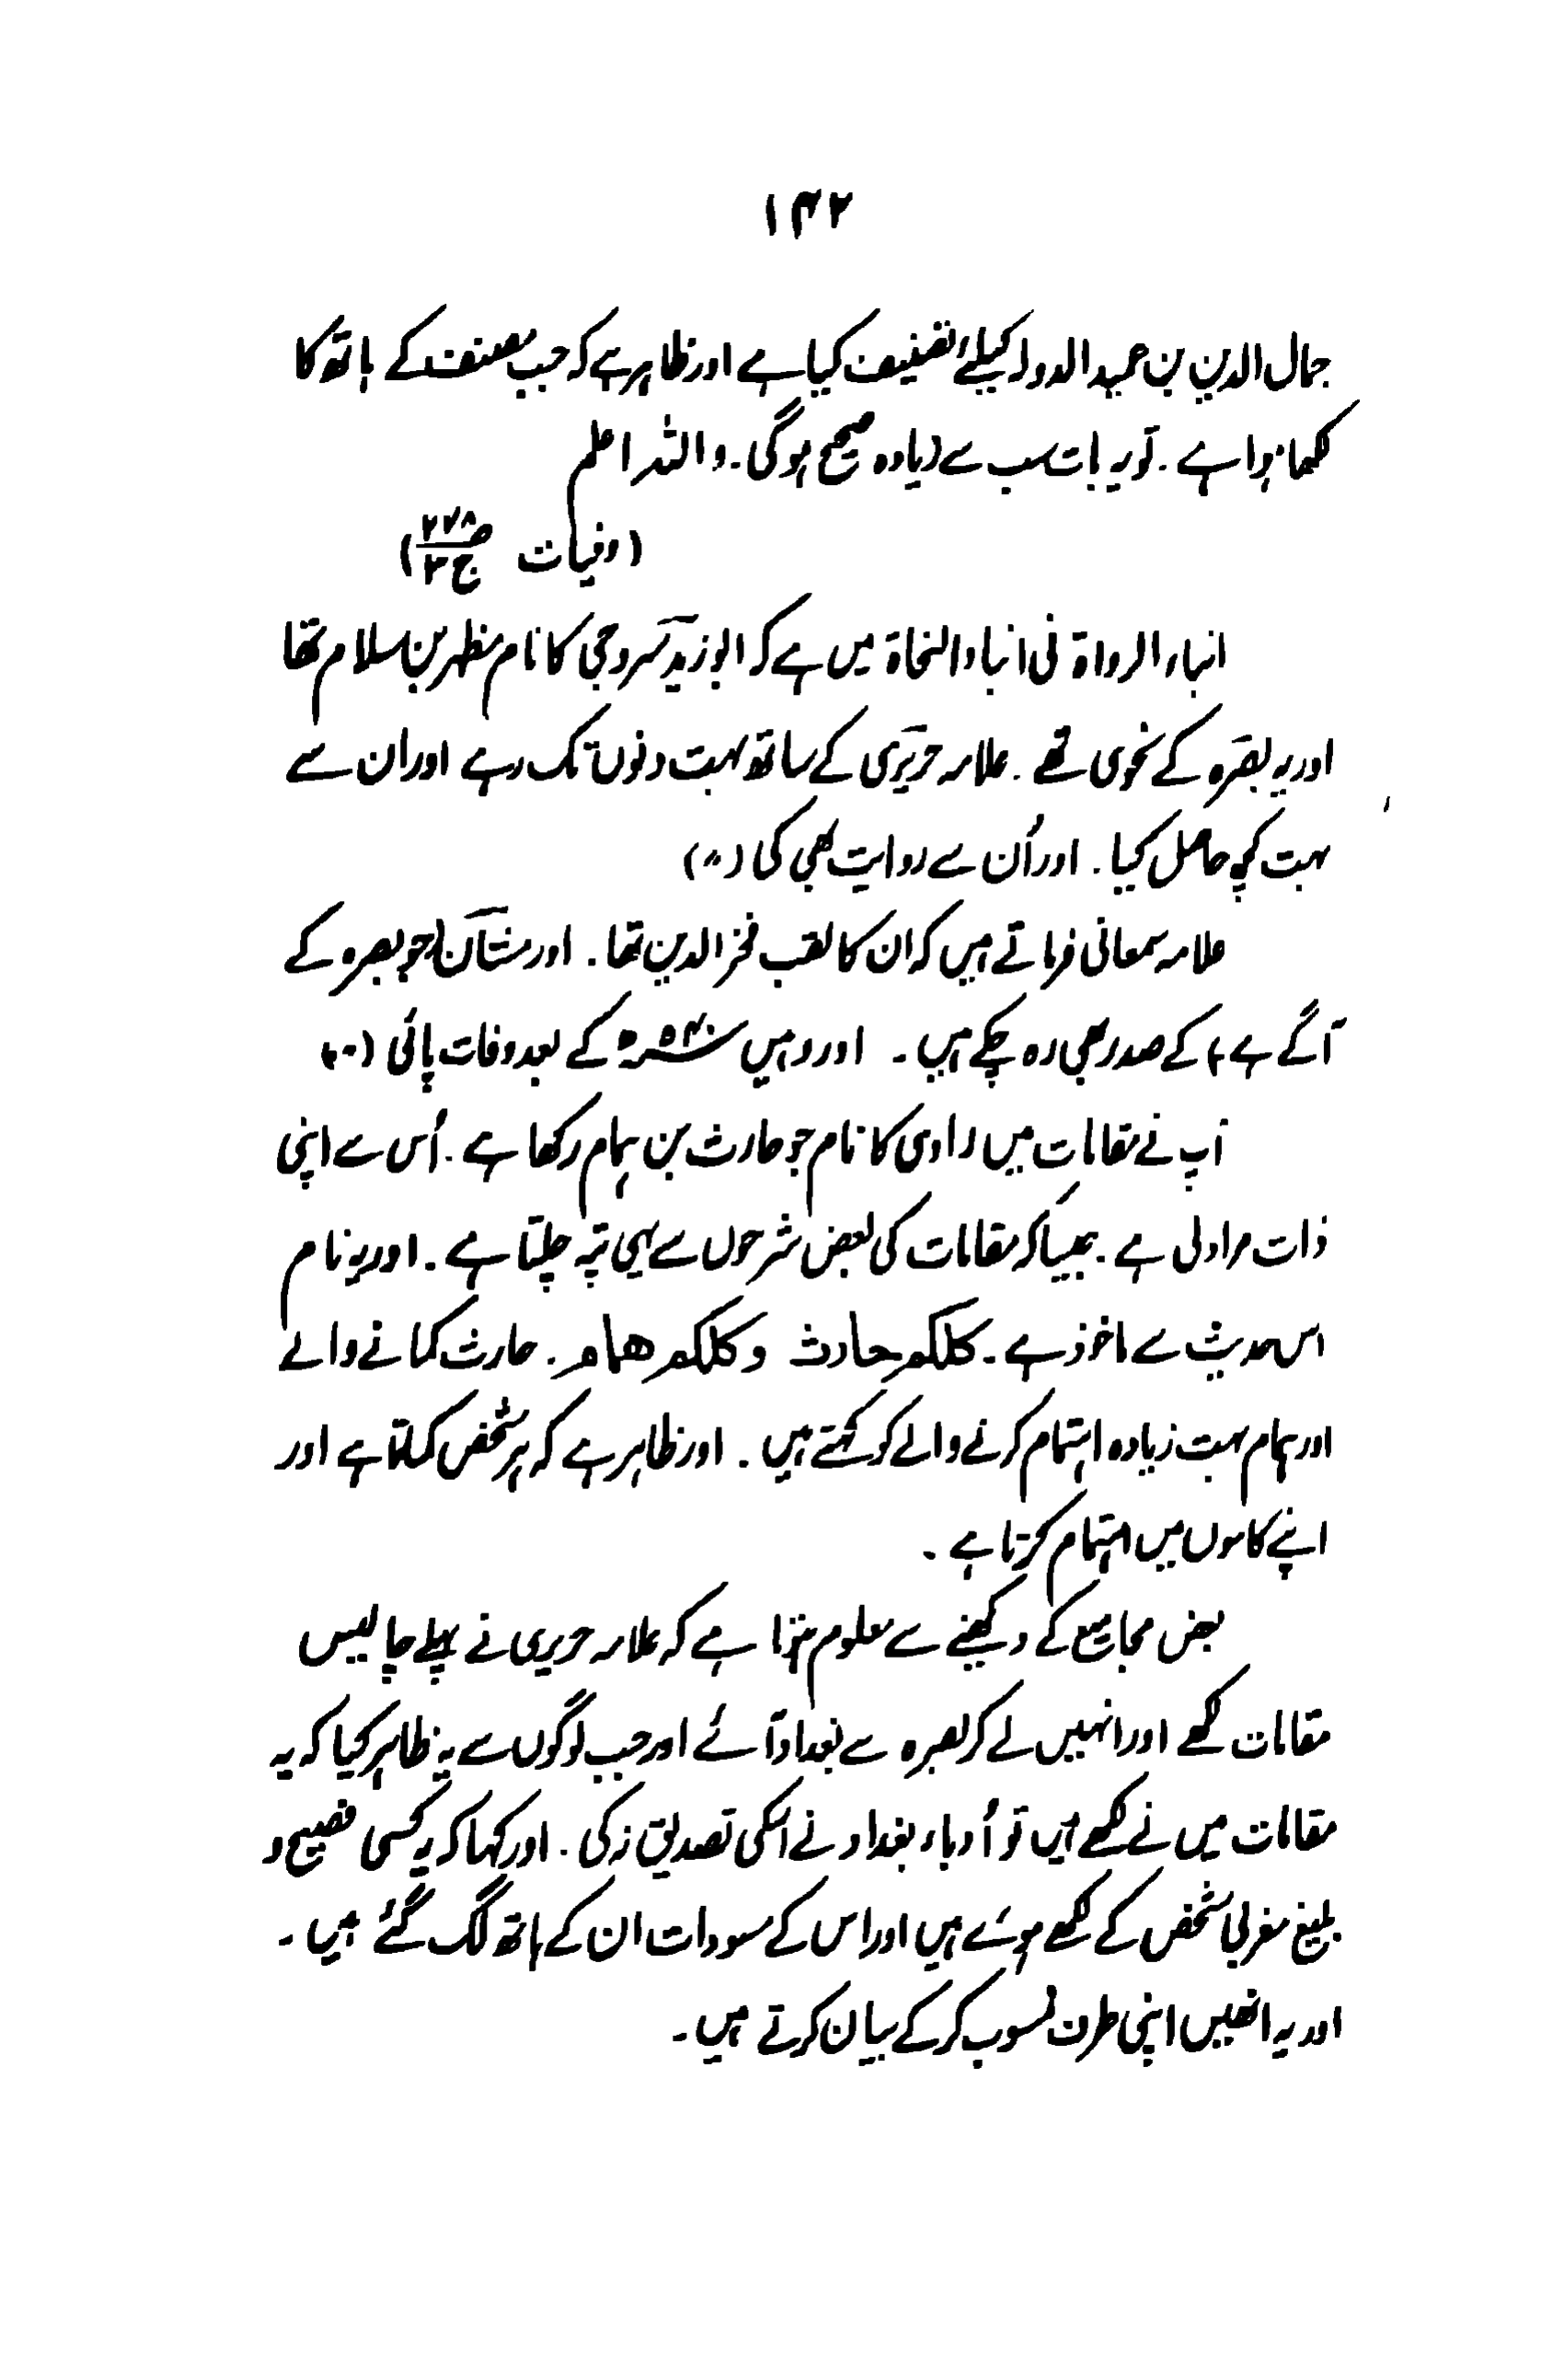 ۱۴۲
جمال الدین بن عمید الدولہ کیلئے تصنیف کیا ہے اور ظاہر ہے کہ جب مصنف کے ہاتھ کا
لکھا ہوا ہے ۔ تو یہ بات سب سے زیادہ صحیح ہوگی ۔ واللہ اعلم
(وفیات ص۲۷۸ ج۳)
انباء الرواۃ فی انباء النحاۃ میں ہے کہ ابو زید سروجی کا نام مظہر بن سلام تھا
اور یہ بصرہ کے نحوی تھے ۔ علامہ حریری کے ساتھ بہت دنوں تک رہے اور ان سے
بہت کچھ حاصل کیا ۔ اور اُن سے روایت بھی کی (〃)
علامہ سمعانی فرماتے ہیں کہ ان کا لقب فخر الدین تھا ۔ اور مشان (جو بصرہ کے
آگے ہے) کے صدر بھی رہ چکے ہیں ۔ اور وہیں ۵۴۰ھ کے بعد وفات پائی (〃)
آپ نے مقامات میں راوی کا نام جو حارث بن ہمام رکھا ہے ۔ اُس سے اپنی
ذات مراد لی ہے ۔ جیسا کہ مقامات کی بعض شرحوں سے یہی پتہ چلتا ہے ۔ اور یہ نام
اس حدیث سے ماخوذ ہے ۔ کلکم حارث و کلکم ھمام ۔ حارث کمانے والے
اور ہمام بہت زیادہ اہتمام کرنے والے کو کہتے ہیں ۔ اور ظاہر ہے کہ ہر شخص کماتا ہے اور
اپنے کاموں میں اہتمام کرتا ہے ۔
بعض مجامیع کے دیکھنے سے معلوم ہوتا ہے کہ علامہ حریری نے پہلے چالیس
مقامات لکھے اور انہیں لے کر بصرہ سے بغداد آئے اور جب لوگوں سے یہ ظاہر کیا کہ یہ
مقامات میں نے لکھے ہیں تو اُدباء بغداد نے اسکی تصدیق نہ کی ۔ اور کہا کہ یہ کسی فصیح و
بلیغ مغربی شخص کے لکھے ہوئے ہیں اور اس کے مسودات ان کے ہاتھ لگ گئے ہیں ۔
اور یہ انھیں اپنی طرف منسوب کر کے بیان کرتے ہیں ۔